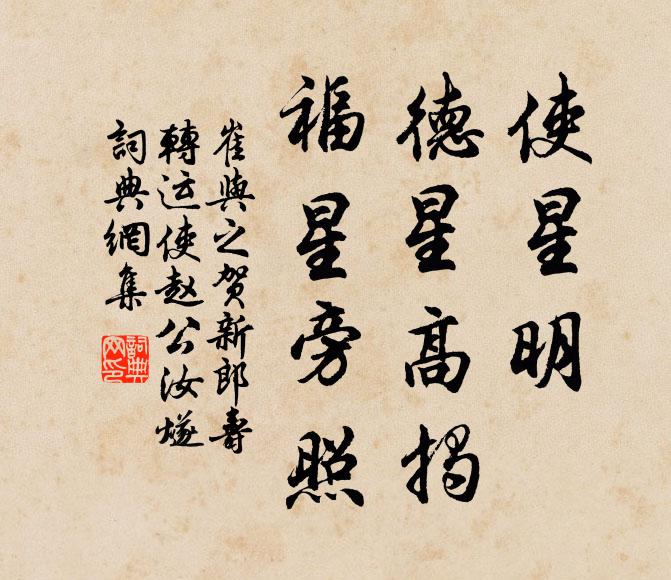 使星明
德星高揭
福星旁照
崔與之賀新郎壽
轉运使赵公汝燧
詞典網集
詞典
网印